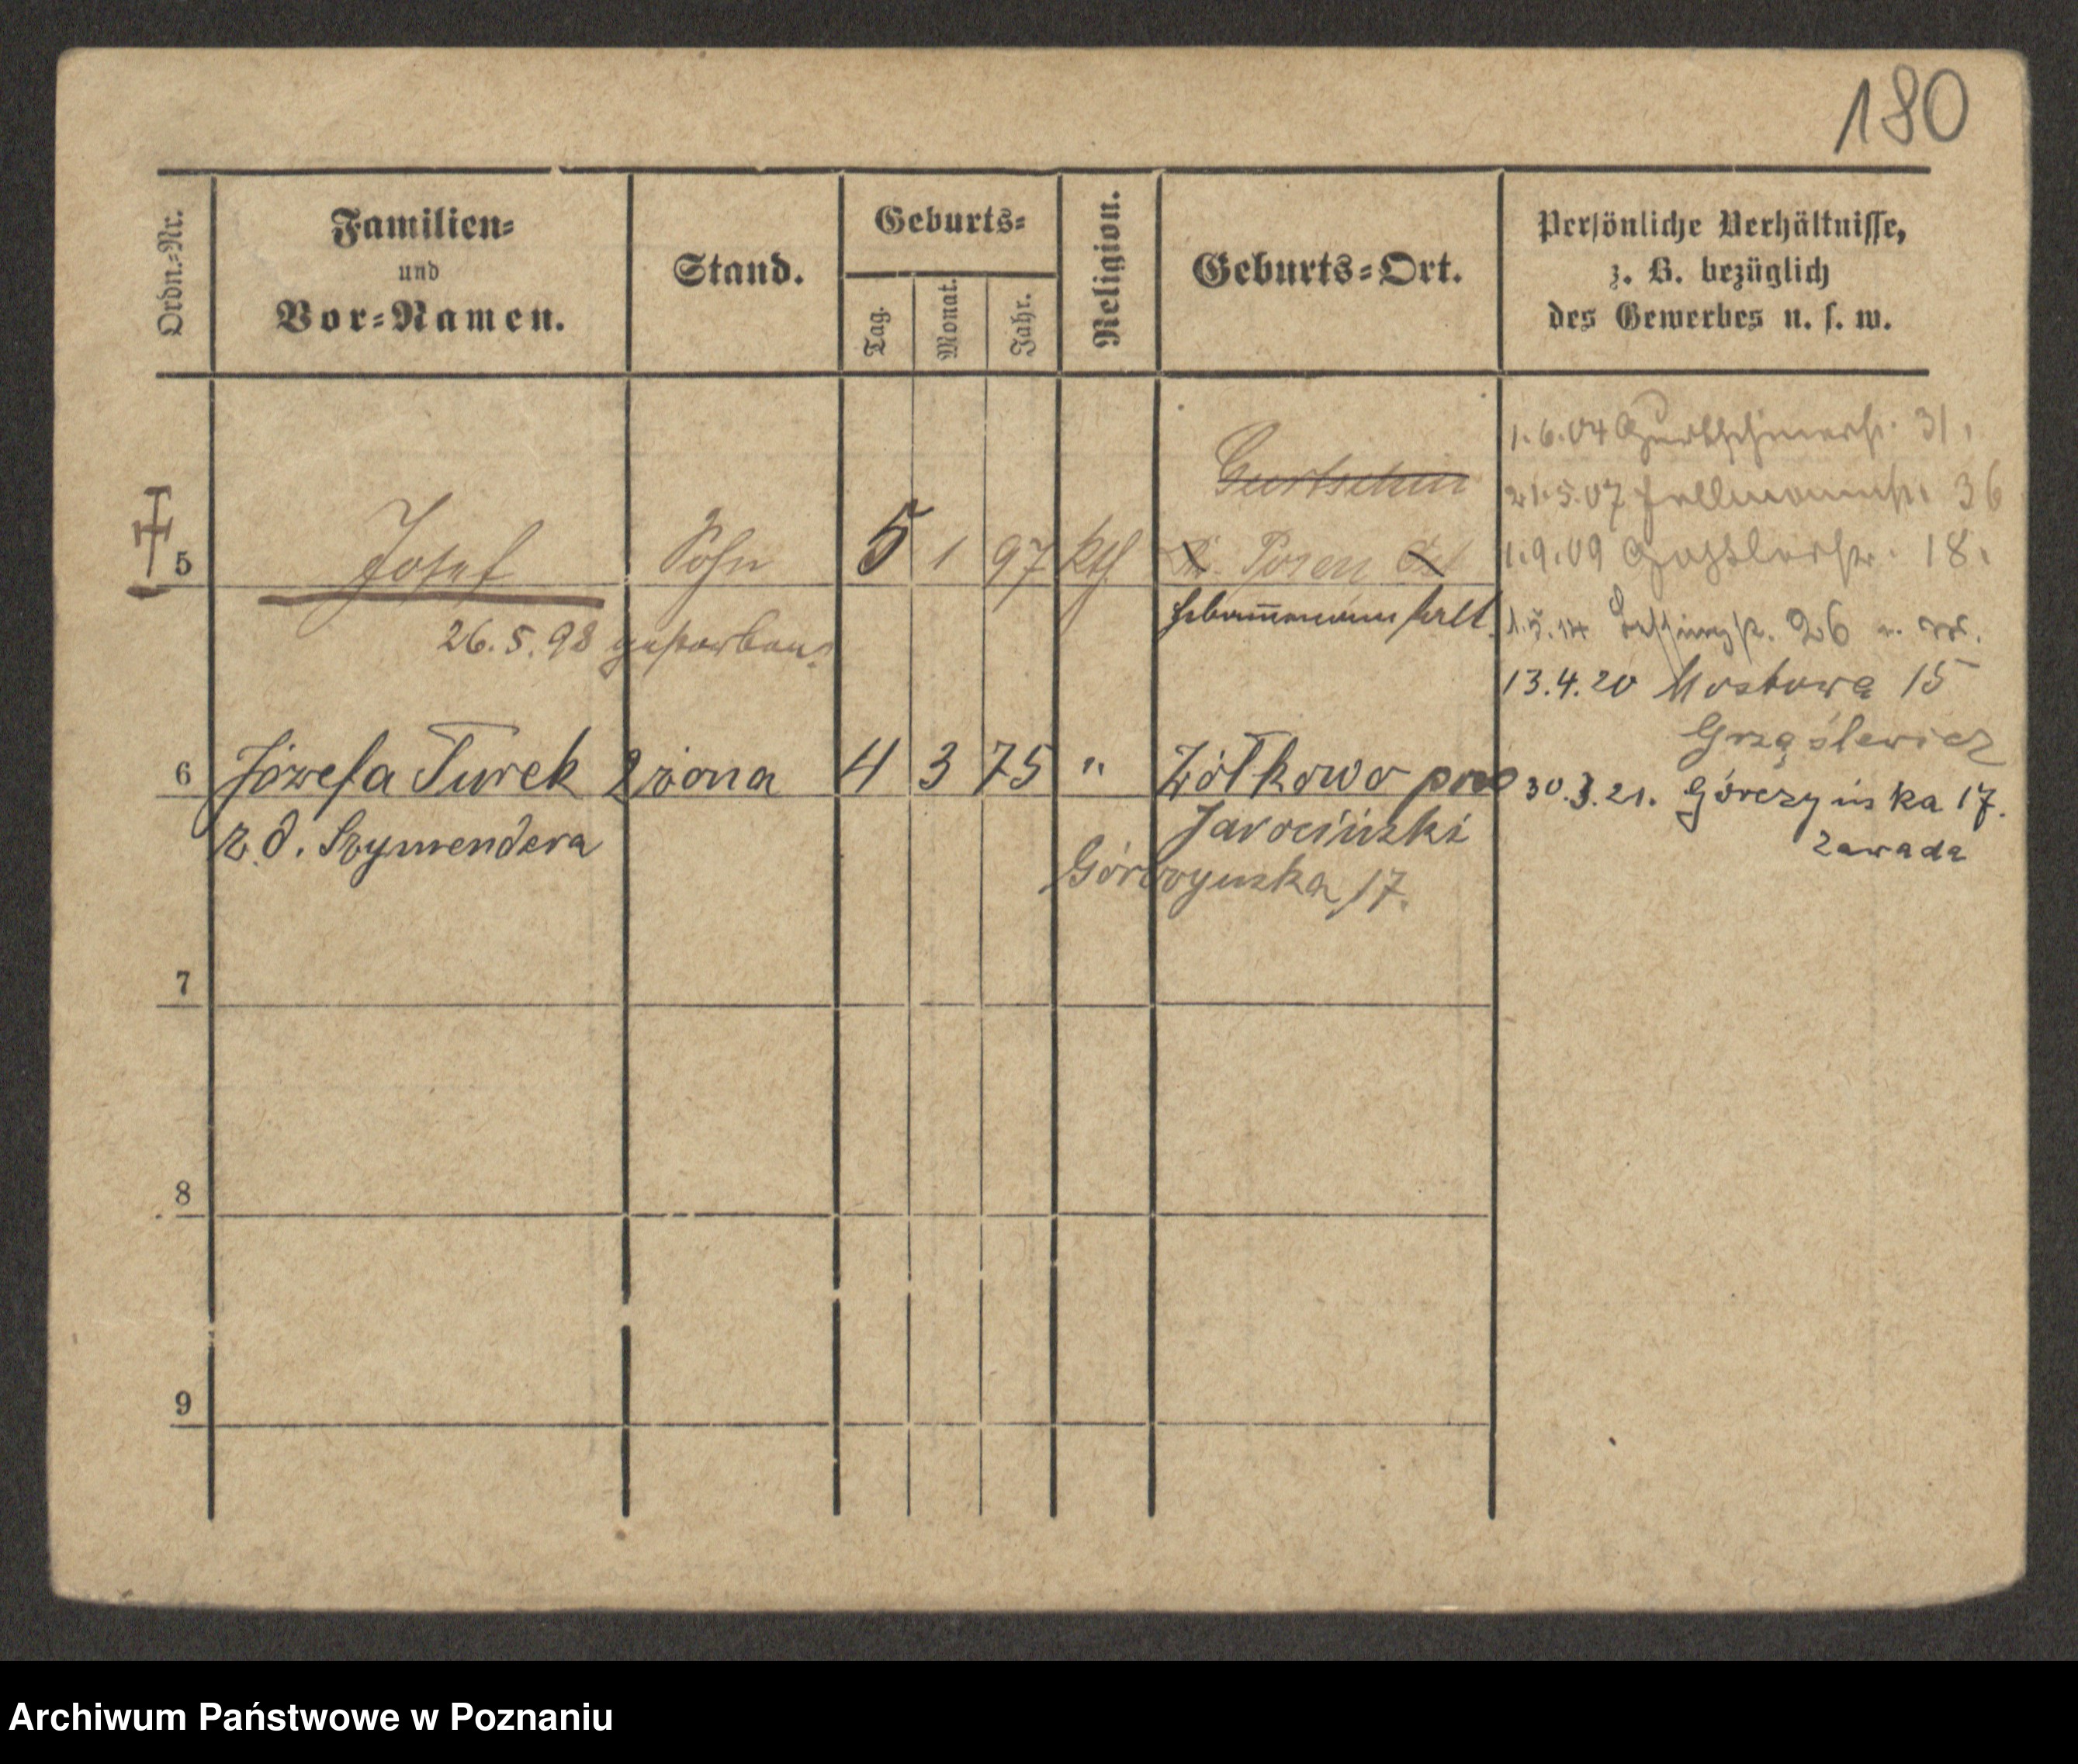 180
Ordn.=Nr.
Familien=
und
Vor=Namen.
Stand.
Geburts=
Tag.
Monat.
Jahr.
Religion.
Geburts=Ort.
Persönliche Verhältnisse,
z. B. bezüglich
des Gewerbes u. s. w.
1.6.04 Gurtschinerstr. 31,
Gurtschin
21.5.07 Hellmannstr. 36
5 Josef Sohn 5 1 97 kth Posen
1.9.09 Gosslerstr. 18.
Hebammenanstalt
26.5.98 gestorben.
1.5.14 Lessingstr. 26
13.4.20 Mostowa 15
Grząślewicz
6 Józefa Turek 2 żona 4 3 75 " Żółkowo pow
30.3.21. Górczyńska 17.
z d. Szymendera
Jarociński
Zawada
Górczyńska 17.
7
8
9
Archiwum Państwowe w Poznaniu